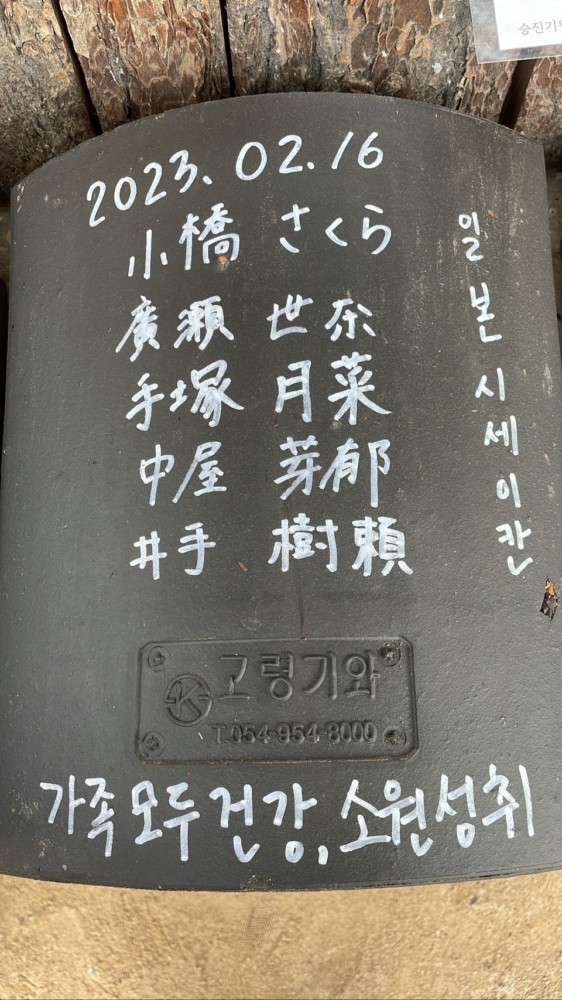 승진기와
2023. 02. 16
小橋 さくら
廣瀬 世奈
手塚 月菜
中屋 芽郁
井手 樹頼
일본 시세이칸
고령기와
T.054-954-8000
가족 모두 건강, 소원성취